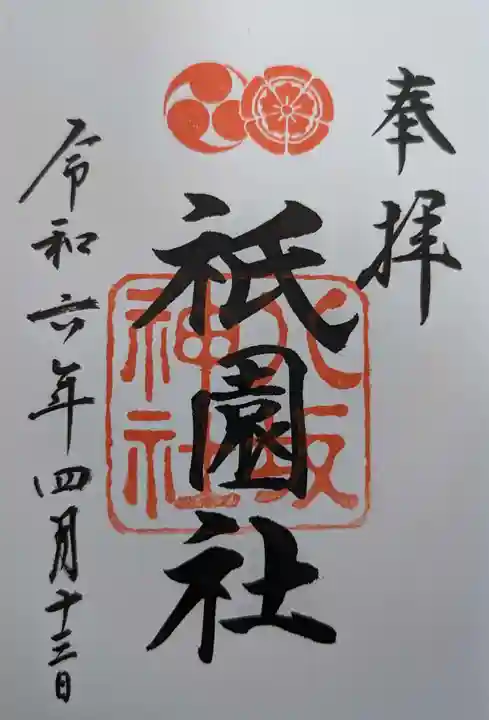 奉拝
八坂神社
祇園社
令和六年四月十三日